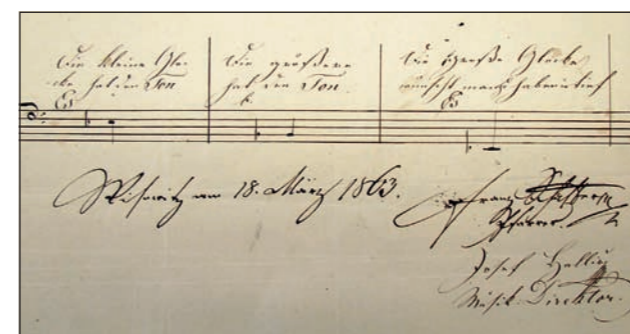 Die kleine Glo-
cke hat den Ton
Es
Die größere
hat den Ton.
Die große Glocke
wünscht man zu haben in tief
Es
am 18. März 1863.
Franz
Pfarrer.
Josef
Musik-Direktor.